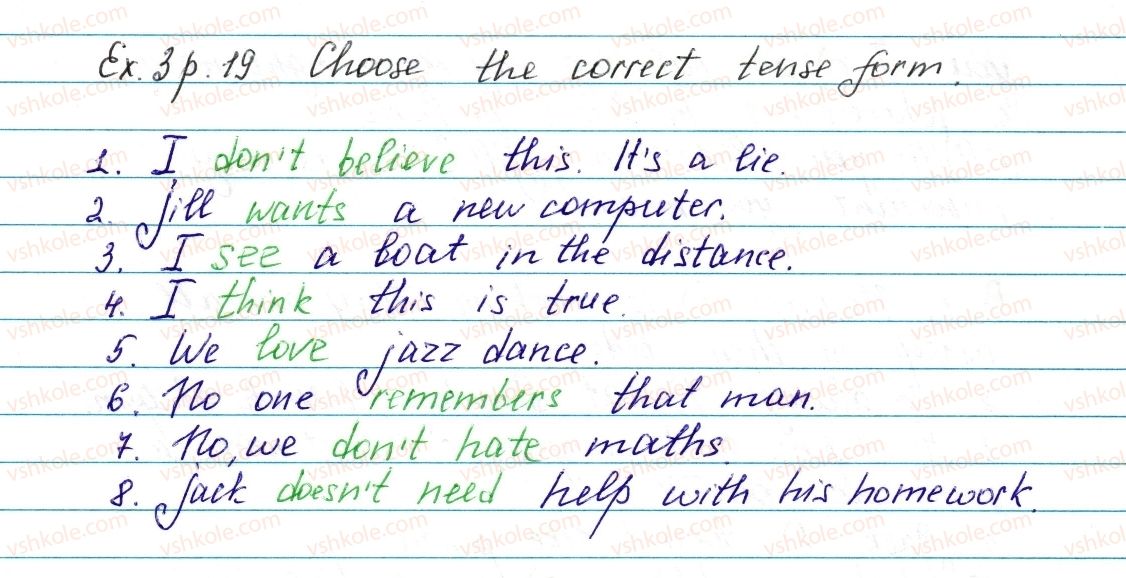 Ex. 3 p. 19 Choose the correct tense form.
1. I don't believe this. It's a lie.
2. Jill wants a new computer.
3. I see a boat in the distance.
4. I think this is true.
5. We love jazz dance.
6. No one remembers that man.
7. No, we don't hate maths.
8. Jack doesn't need help with his homework.